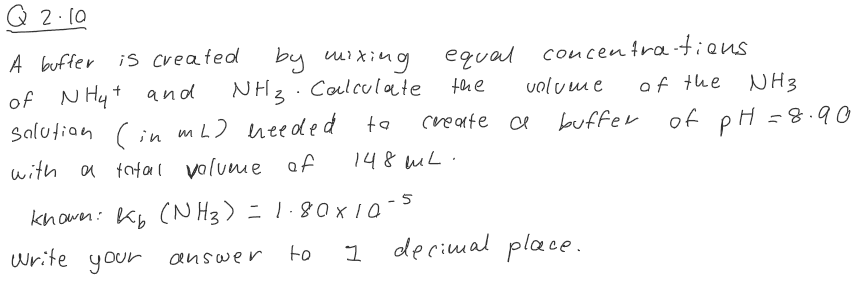 Q 2.10
A buffer is created by mixing equal concentrations
of NH4+ and NH3. Calculate the volume of the NH3
solution (in mL) needed to create a buffer of pH = 8.90
with a total volume of 148 mL.
known: Kb (NH3) = 1.80 x 10^-5
Write your answer to 1 decimal place.